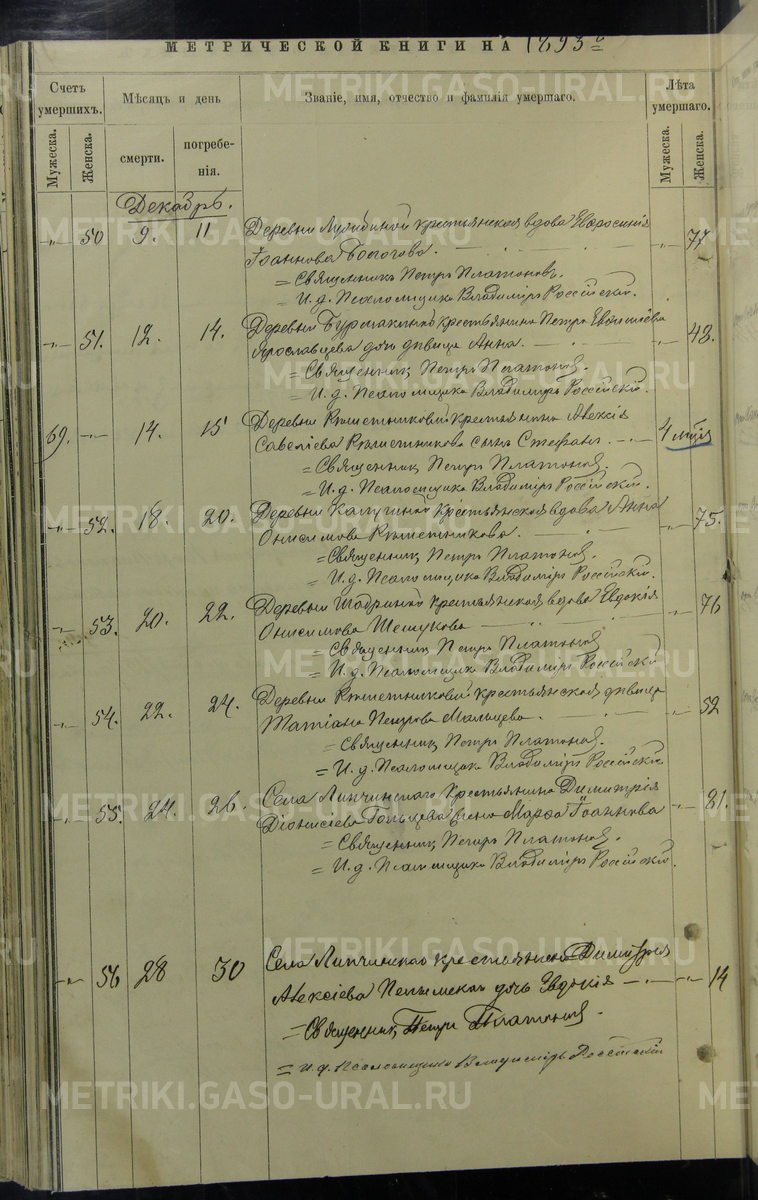 МЕТРИЧЕСКОЙ КНИГИ НА 1893 г.
Счетъ умершихъ.
Мѣсяцъ и день
Званіе, имя, отчество и фамилія умершаго.
Лѣта умершаго.
Мужеска.
Женска.
смерти.
погребе-
нія.
Мужеска.
Женска.
Декабрь.
50 9. 11 Деревни крестьянская вдова Евфросинія 77
Іоаннова
= Священникъ Петръ Платоновъ.
= И. д. Псаломщика Владиміръ Россійскій.
51. 12. 14. Деревни Бурмакиной крестьянина Петра 43.
Ярославцева дочь дѣвица Анна.
= Священникъ Петръ Платоновъ.
= И. д. Псаломщика Владиміръ Россійскій.
69. 14. 15 Деревни Рѣшетниковой крестьянина Алексія 4 мѣс.
Савеліева Рѣшетникова сынъ Стефанъ.
= Священникъ Петръ Платоновъ.
= И. д. Псаломщика Владиміръ Россійскій.
52. 18. 20. Деревни крестьянская вдова Анна 75.
Онисимова Рѣшетникова.
= Священникъ Петръ Платоновъ.
= И. д. Псаломщика Владиміръ Россійскій.
53. 20. 22. Деревни Шадриной крестьянская вдова Евдокія 76
Онисимова Шешукова
= Священникъ Петръ Платоновъ
= И. д. Псаломщика Владиміръ Россійскій
54. 22. 24. Деревни Рѣшетниковой крестьянская дѣвица 52
Татіана Петрова Мальцева.
= Священникъ Петръ Платоновъ.
= И. д. Псаломщика Владиміръ Россійскій
55. 24. 26. Села Липчинскаго крестьянина Димитрія 81.
Діонисіева жена Марѳа Іоаннова
= Священникъ Петръ Платоновъ.
= И. д. Псаломщика Владиміръ Россійскій.
56 28 30 Села Липчинскаго крестьянина Димитрія 14
Алексіева дочь Евдокія
= Священникъ Петръ Платоновъ.
= И. д. Псаломщика Владиміръ Россійскій
METRIKI.GASO-URAL.RU